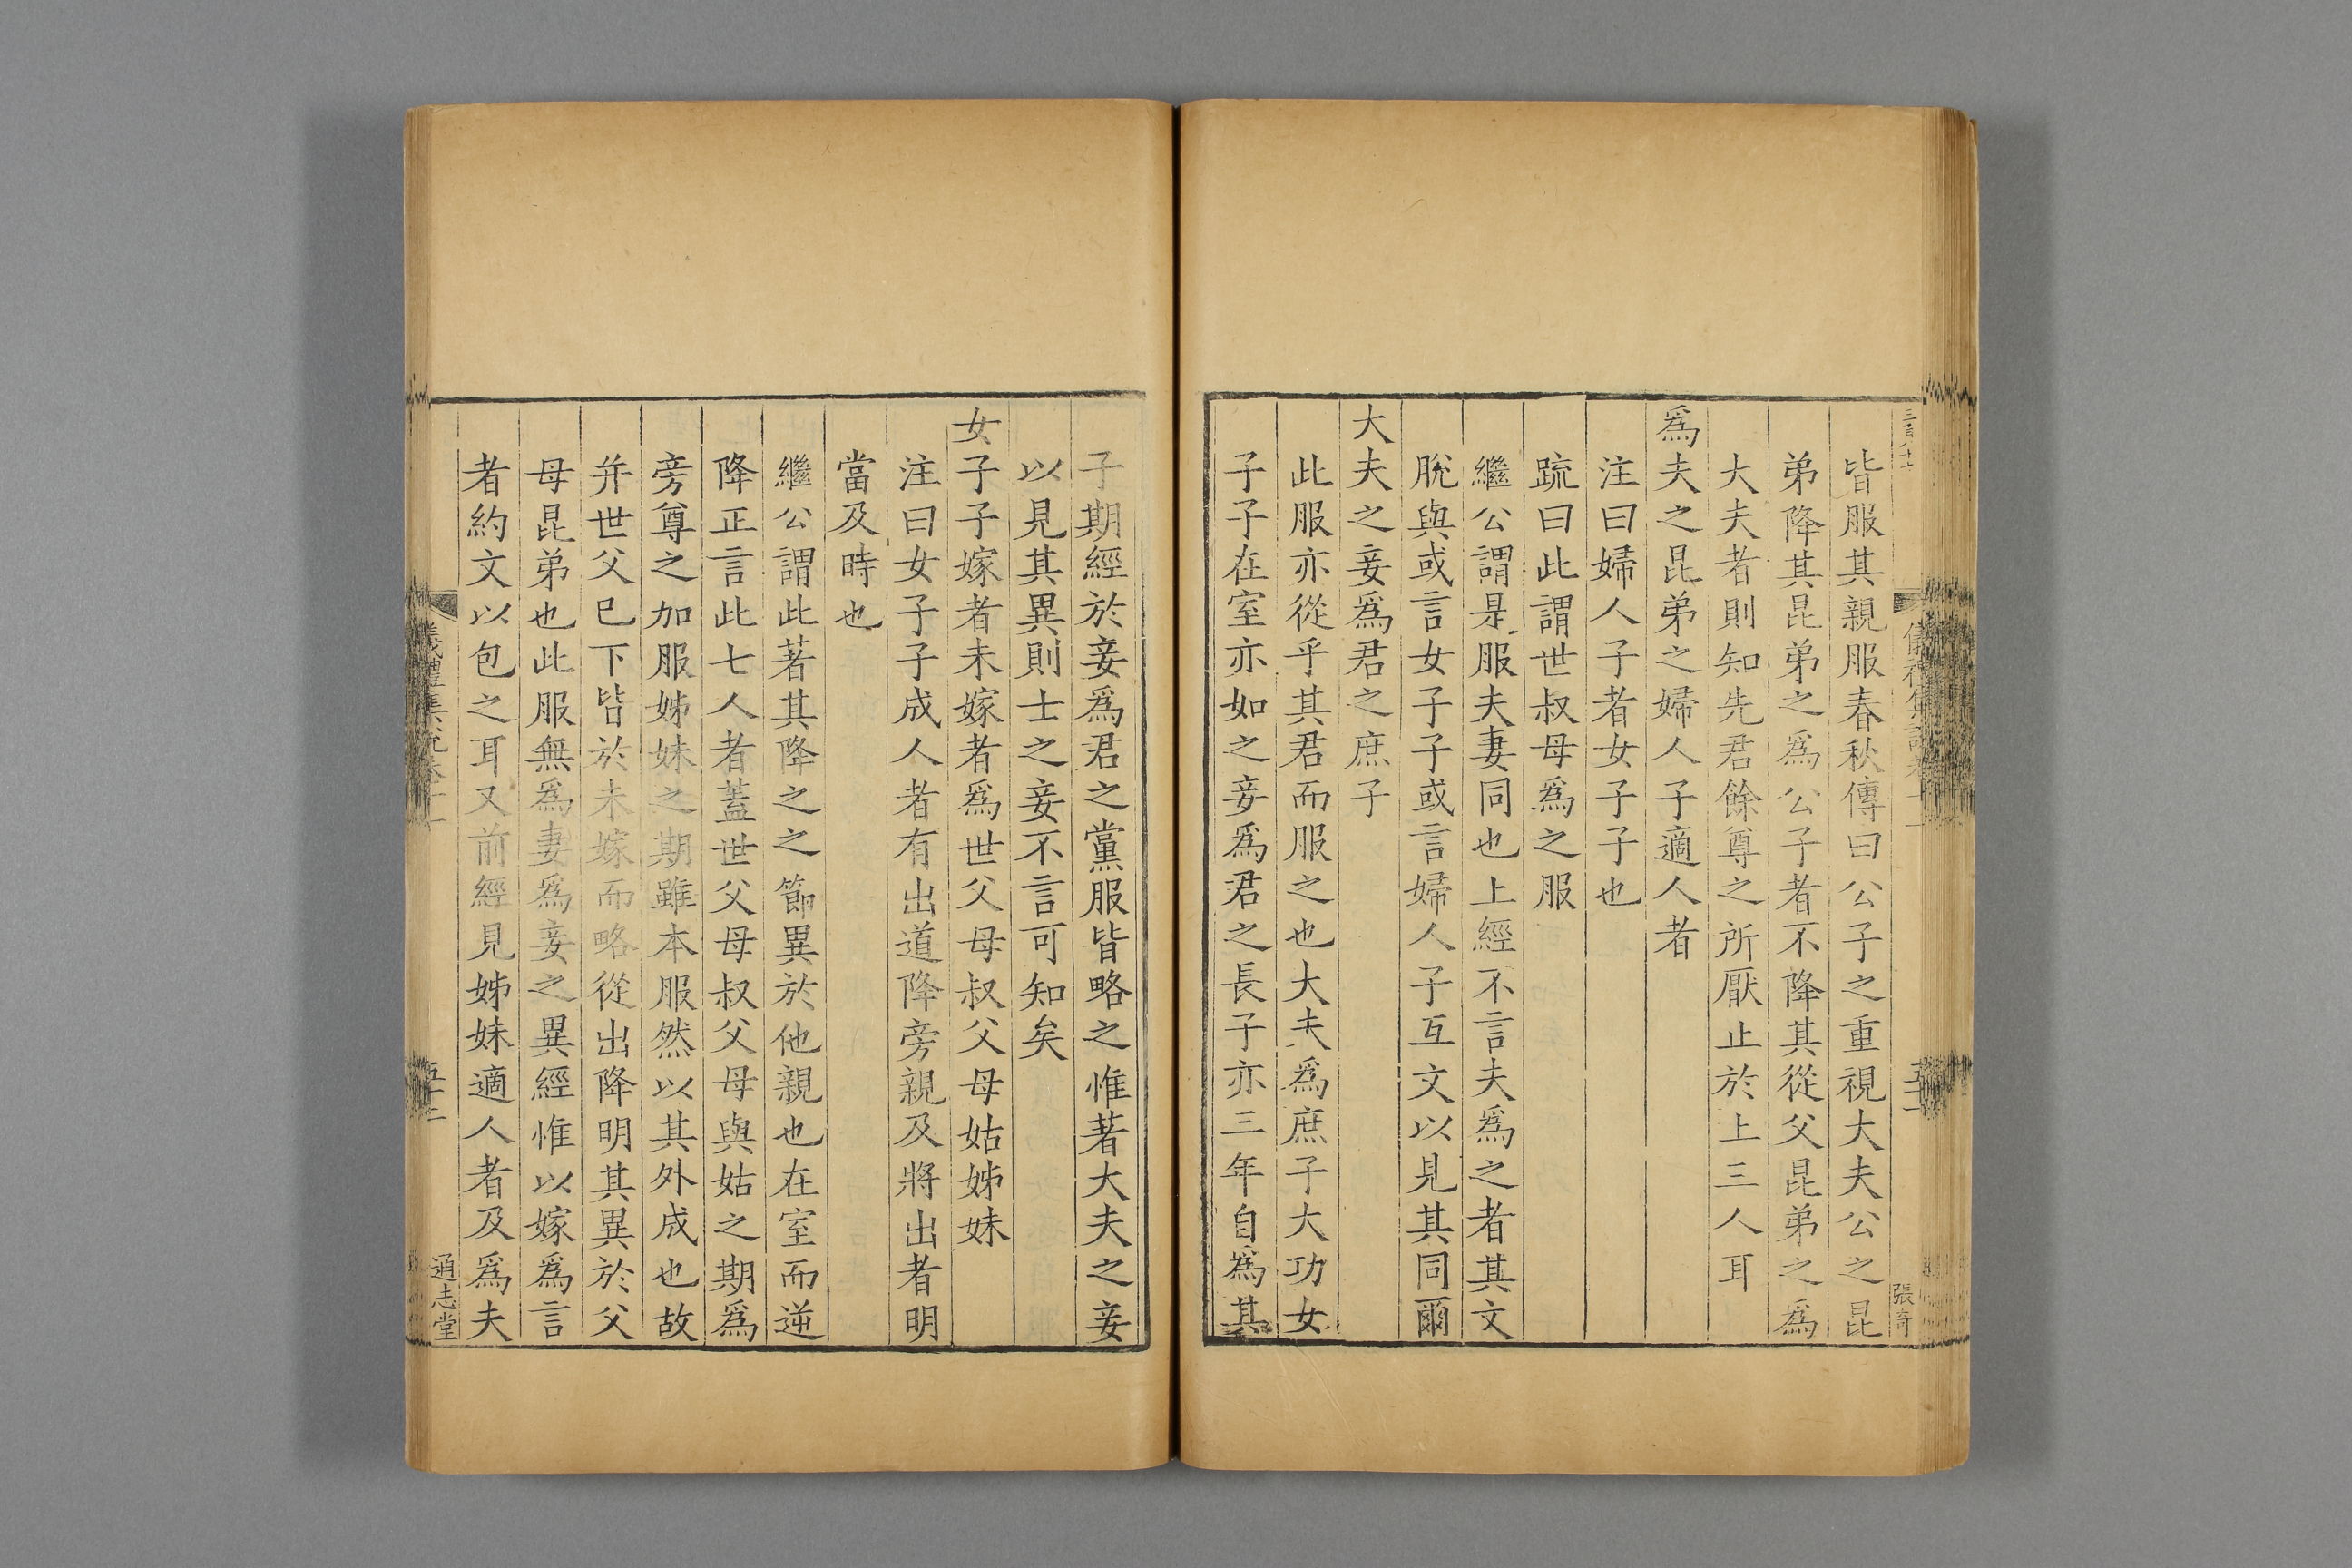 皆服其親服春秋傳曰公子之重視大夫公之昆
弟降其昆弟之為公子者不降其從父昆弟之為
大夫者則知先君餘尊之所厭止於上三人耳
為夫之昆弟之婦人子適人者
注曰婦人子者女子子也
疏曰此謂世叔母為之服
繼公謂是服夫妻同也上經不言夫為之者其文
脫與或言女子子或言婦人子互文以見其同爾
大夫之妾為君之庶子
此服亦從乎其君而服之也大夫為庶子大功女
子子在室亦如之妾為君之長子亦三年自為其
張奇
子期經於妾為君之黨服皆略之惟著大夫之妾
以見其異則士之妾不言可知矣
女子子嫁者未嫁者為世父母叔父母姑姊妹
注曰女子子成人者有出道降旁親及將出者明
當及時也
繼公謂此著其降之之節異於他親也在室而逆
降正言此七人者蓋世父母叔父母與姑之期為
旁尊之加服姊妹之期雖本服然以其外成也故
并世父已下皆於未嫁而略從出降明其異於父
母昆弟也此服無為妻為妾之異經惟以嫁為言
者約文以包之耳又前經見姊妹適人者及為夫
通志堂